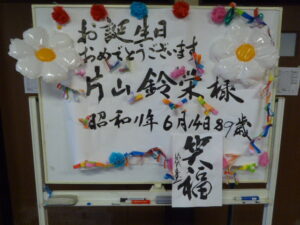 お誕生日
おめでとうございます
片山鈴栄様
昭和11年6月14日89歳
笑福